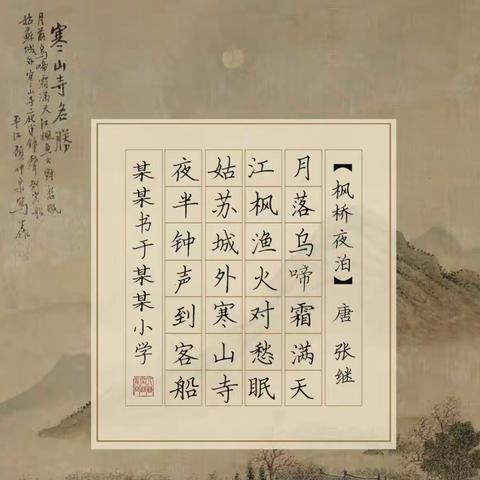 【枫桥夜泊】 唐 张继
月落乌啼霜满天
江枫渔火对愁眠
姑苏城外寒山寺
夜半钟声到客船
某某书于某某小学
寒山寺名勝
月落烏啼霜满天江楓魚火對愁眠
姑蘇城外寒山寺夜半鐘聲到客船